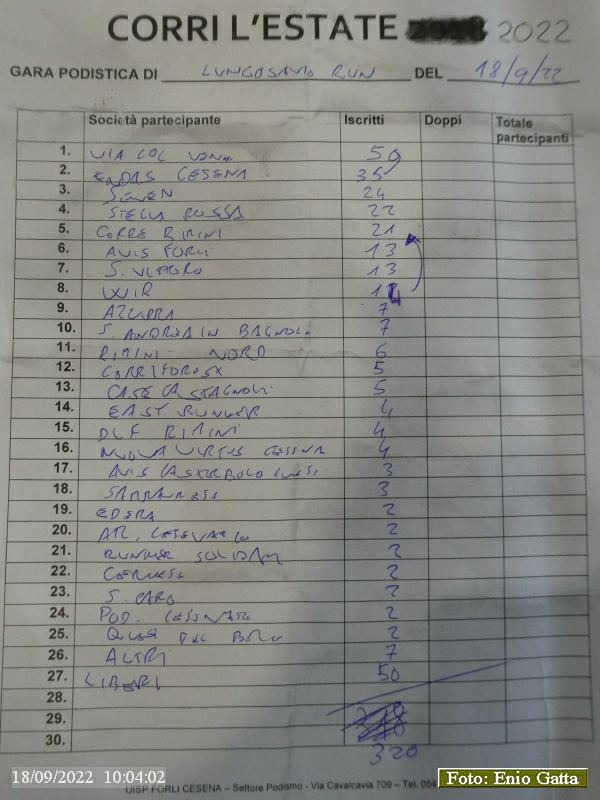 CORRI L'ESTATE 2022
GARA PODISTICA DI LUNGOSAVIO RUN DEL 18/9/22
Società partecipante Iscritti Doppi Totale partecipanti
1. VIA COL VENTO 50
2. ENDAS CESENA 35
3. SEVEN 24
4. STELLA ROSSA 22
5. CORRE RIMINI 21
6. AVIS FORLI 13
7. S. VITTORE 13
8. WIR 14
9. AZZURRA 7
10. S. ANDREA IN BAGNOLO 7
11. RIMINI NORD 6
12. CORRIFOREST 5
13. CASE CASTAGNOLI 5
14. EAST RUNNER 4
15. DLF RIMINI 4
16. NUOVA VIRTUS CESENA 4
17. AVIS 3
18. 3
19. EDERA 2
20. ATL. 2
21. RUNNER 2
22. 2
23. S. 2
24. POD. 2
25. DEL 2
26. ALTRI 7
27. LIBERI 50
28.
29.
30. 320
18/09/2022 10:04:02
UISP FORLI CESENA – Settore Podismo - Via Cavalcavia 709 – Tel. 054
Foto: Enio Gatta